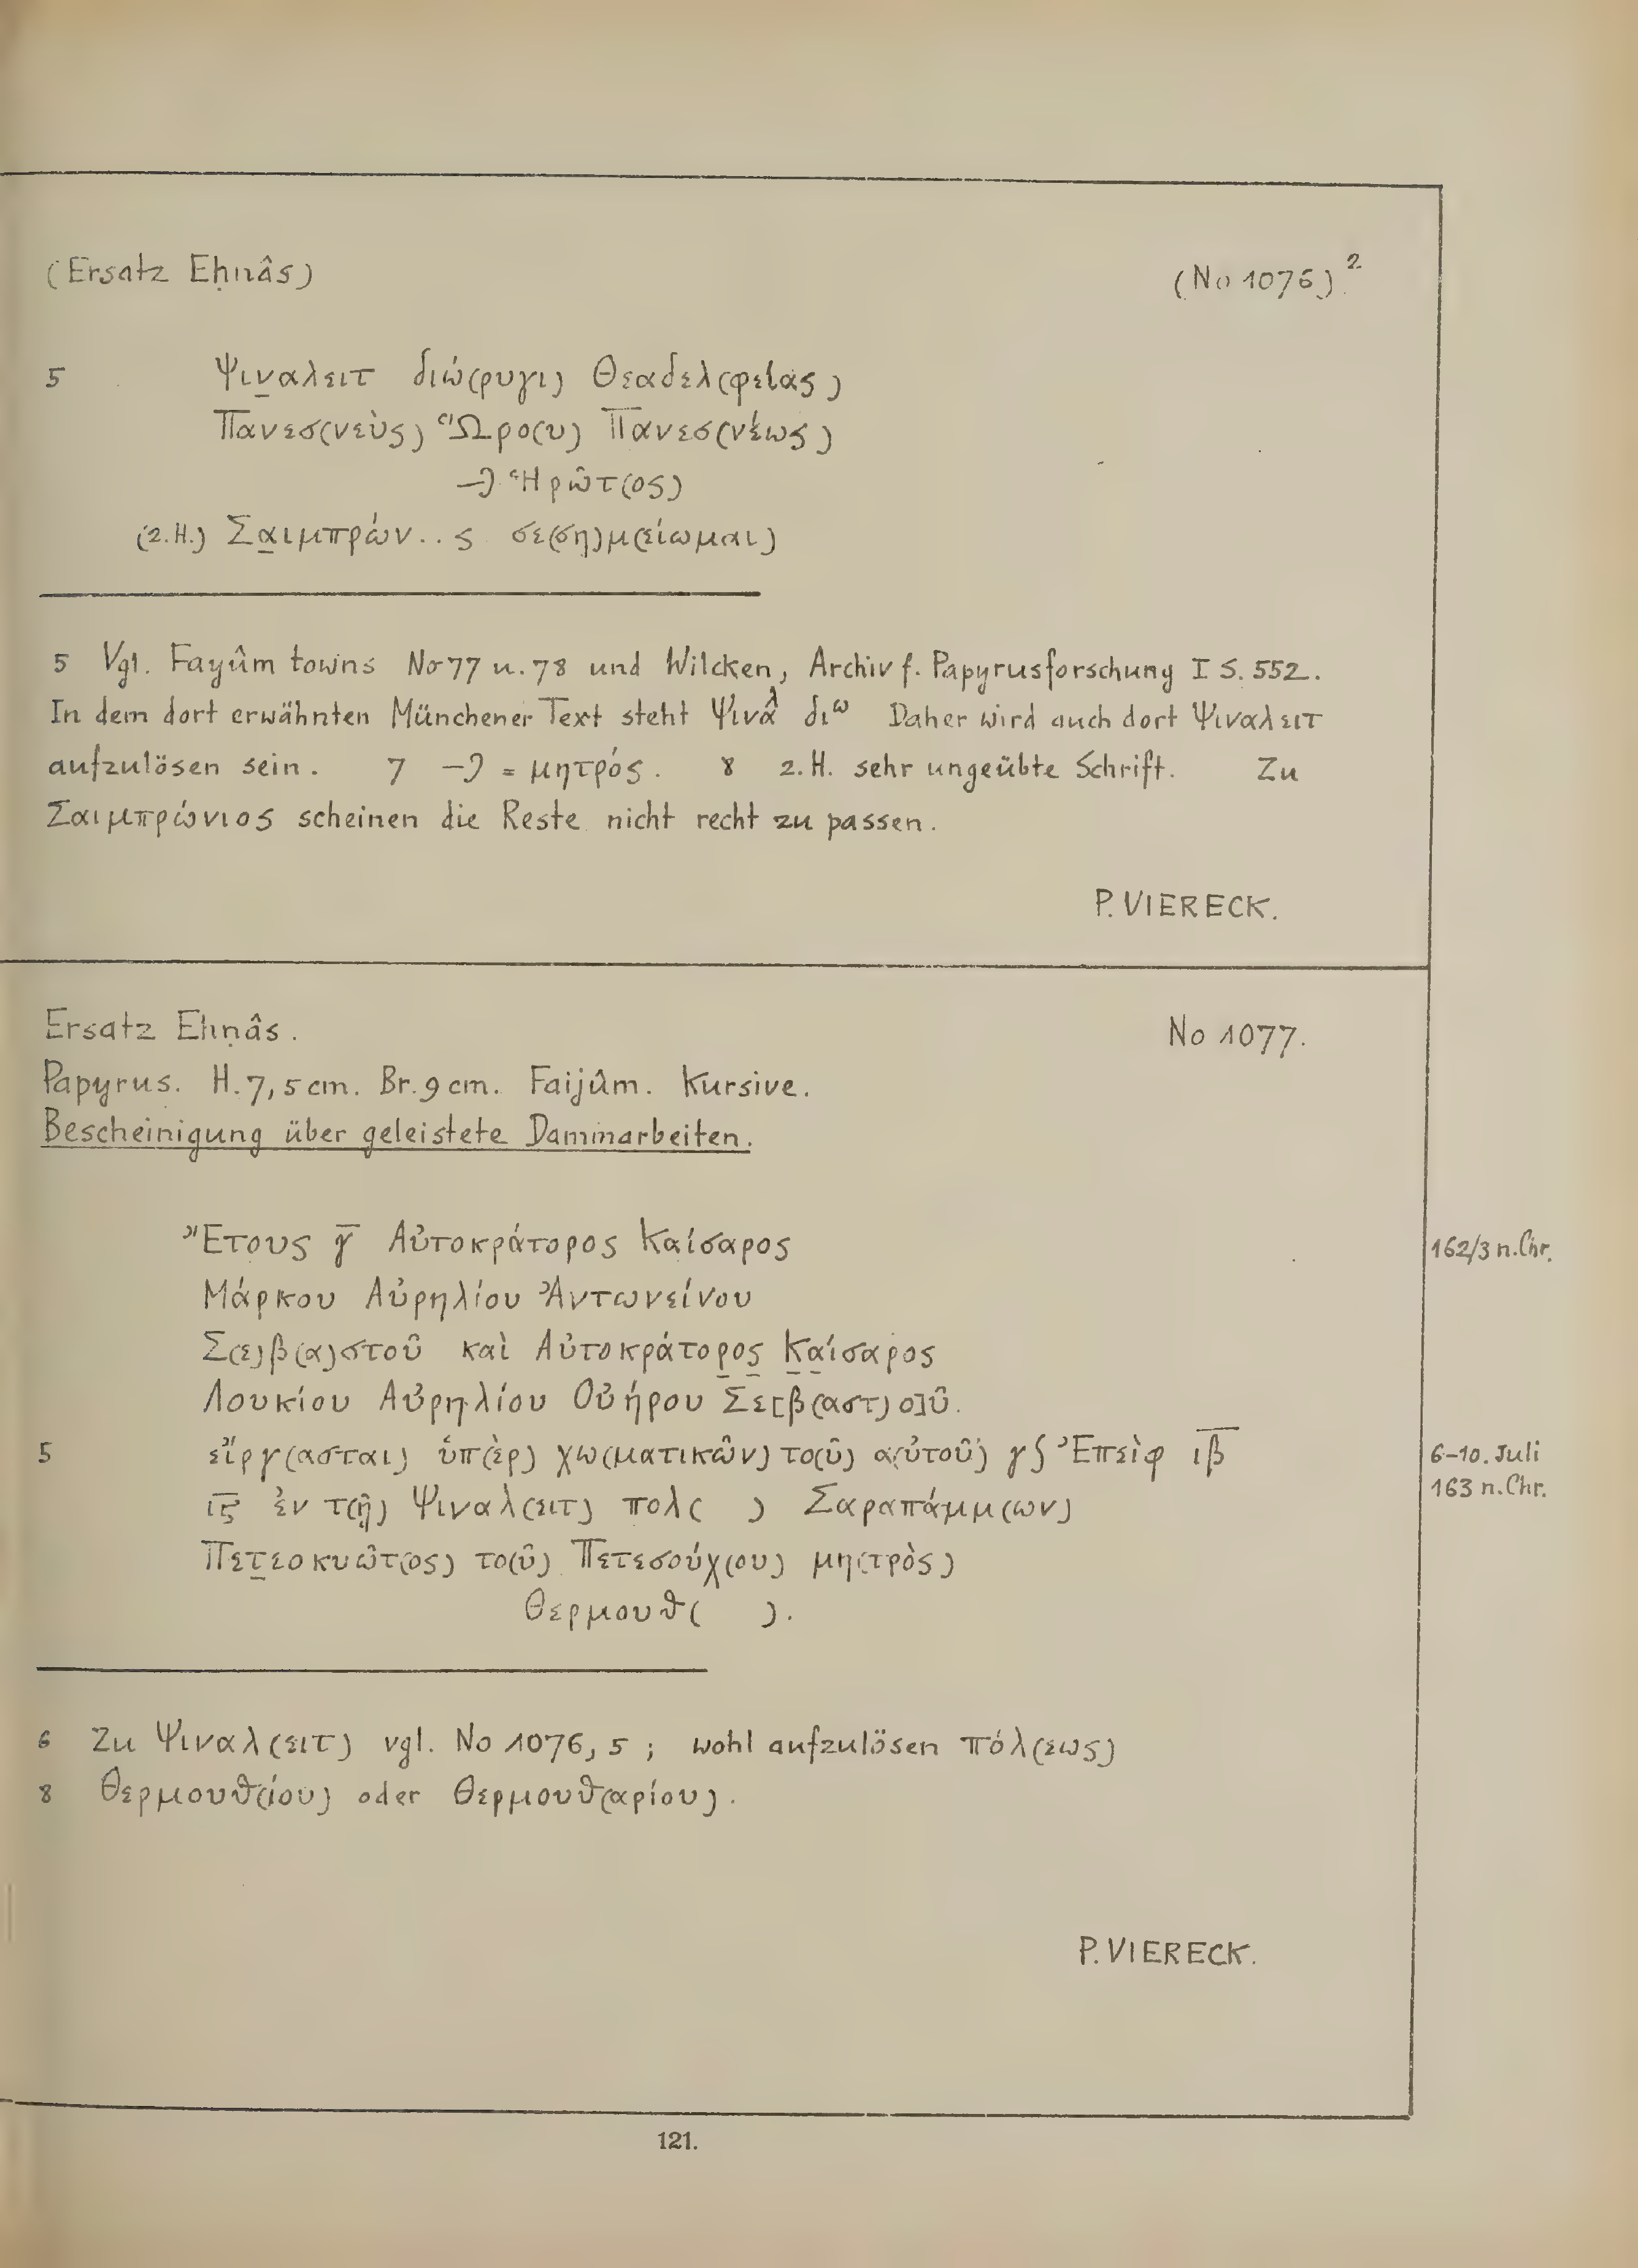 (Ersatz Eḥnâs) (No 1076)²
5 Ψιν̲αλειτ διώ(ρυγι) Θεαδελ(φείας)
Πανεσ(νεὺς) Ὥρο(υ) Πανεσ(νέως)
–) Ἡρῶτ(ος)
(2.H.) Σα̲ιμπρών..ς σε(ση)μ(είωμαι)
5 Vgl. Fayûm towns No 77 u. 78 und Wilcken, Archiv f. Papyrusforschung I S. 552.
In dem dort erwähnten Münchener Text steht Ψιναλ διω Daher wird auch dort Ψιναλειτ
aufzulösen sein. 7 –) = μητρός. 8 2. H. sehr ungeübte Schrift. Zu
Σαιμπρώνιος scheinen die Reste nicht recht zu passen.
P. VIERECK.
Ersatz Eḥnâs. No 1077.
Papyrus. H. 7,5 cm. Br. 9 cm. Faijûm. Kursive.
Bescheinigung über geleistete Dammarbeiten.
Ἔτους γ̅ Αὐτοκράτορος Καίσαρος 162/3 n. Chr.
Μάρκου Αὐρηλίου Ἀντωνείνου
Σ(ε)β(α)στοῦ καὶ Αὐτοκράτορο̲ς̲ Κ̲α̲ίσαρος
Λουκίου Αὐρηλίου Οὐήρου Σε[β(αστ)ο]ῦ.
5 εἴργ(ασται) ὑπ(ὲρ) χω(ματικῶν) το(ῦ) α(ὐτοῦ) γ∫ Ἐπεὶφ ιβ̅ 6–10. Juli
ις̅ ἐν τ(ῇ) Ψιναλ(ειτ) πολ( ) Σαραπάμμ(ων) 163 n. Chr.
Πετ̲εοκυῶτ(ος) το(ῦ) Πετεσούχ(ου) μη(τρὸς)
Θερμουθ( ).
6 Zu Ψιναλ(ειτ) vgl. No 1076, 5; wohl aufzulösen πόλ(εως)
8 Θερμουθ(ίου) oder Θερμουθ(αρίου).
P. VIERECK.
121.